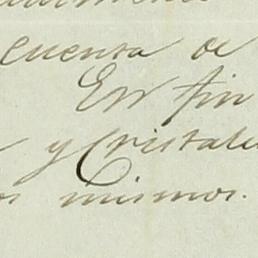 cuenta de
En fin
y Cristale
os mismos.